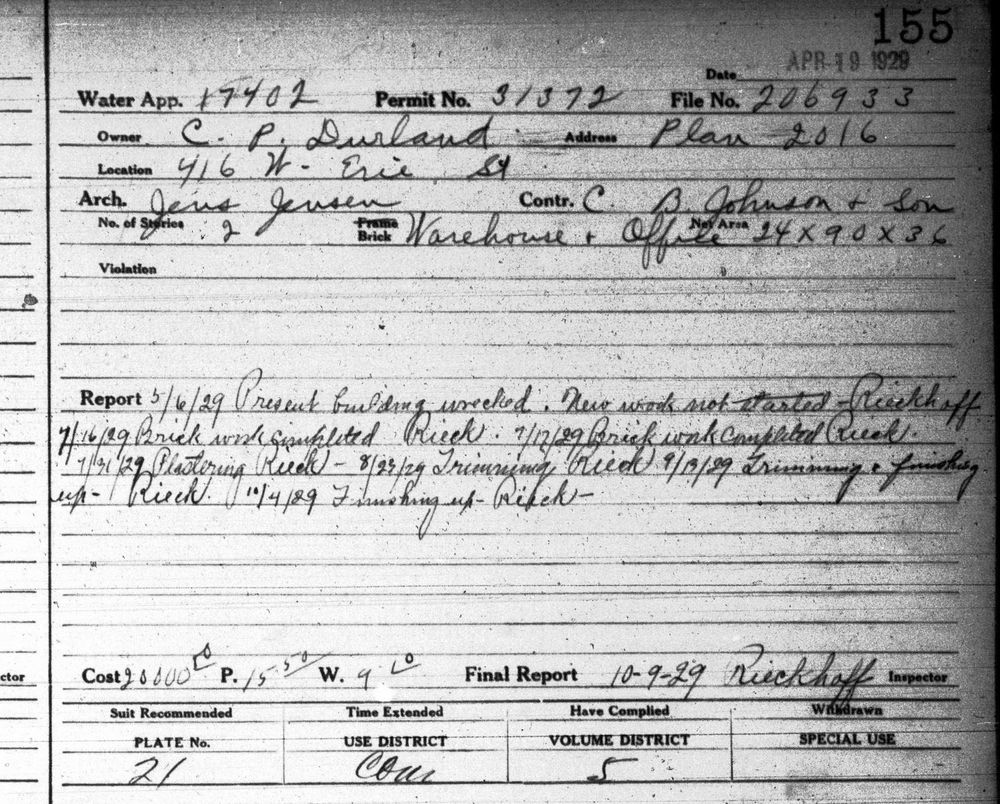 155
Date APR 19 1929
Water App. 17402 Permit No. 31372 File No. 206933
Owner C. P. Durland Address Plan 2016
Location 416 W. Erie St
Arch. Jens Jensen Contr. C. B. Johnson + Son
No. of Stories 2 Frame Brick Warehouse + Office Net Area 24 X 90 X 36
Violation
Report 5/6/29 Present building wrecked. New work not started - Rieckhoff
7/16/29 Brick work completed Rieck. 7/17/29 Brick work completed Rieck.
7/31/29 Plastering Rieck - 8/23/29 Trimming Rieck 9/13/29 Trimming & finishing
up - Rieck. 10/4/29 Finishing up - Rieck -
ctor Cost 20000 00 P. 15 50 W. 9 10 Final Report 10-9-29 Rieckhoff Inspector
Suit Recommended Time Extended Have Complied Withdrawn
PLATE No. USE DISTRICT VOLUME DISTRICT SPECIAL USE
21 Com 5